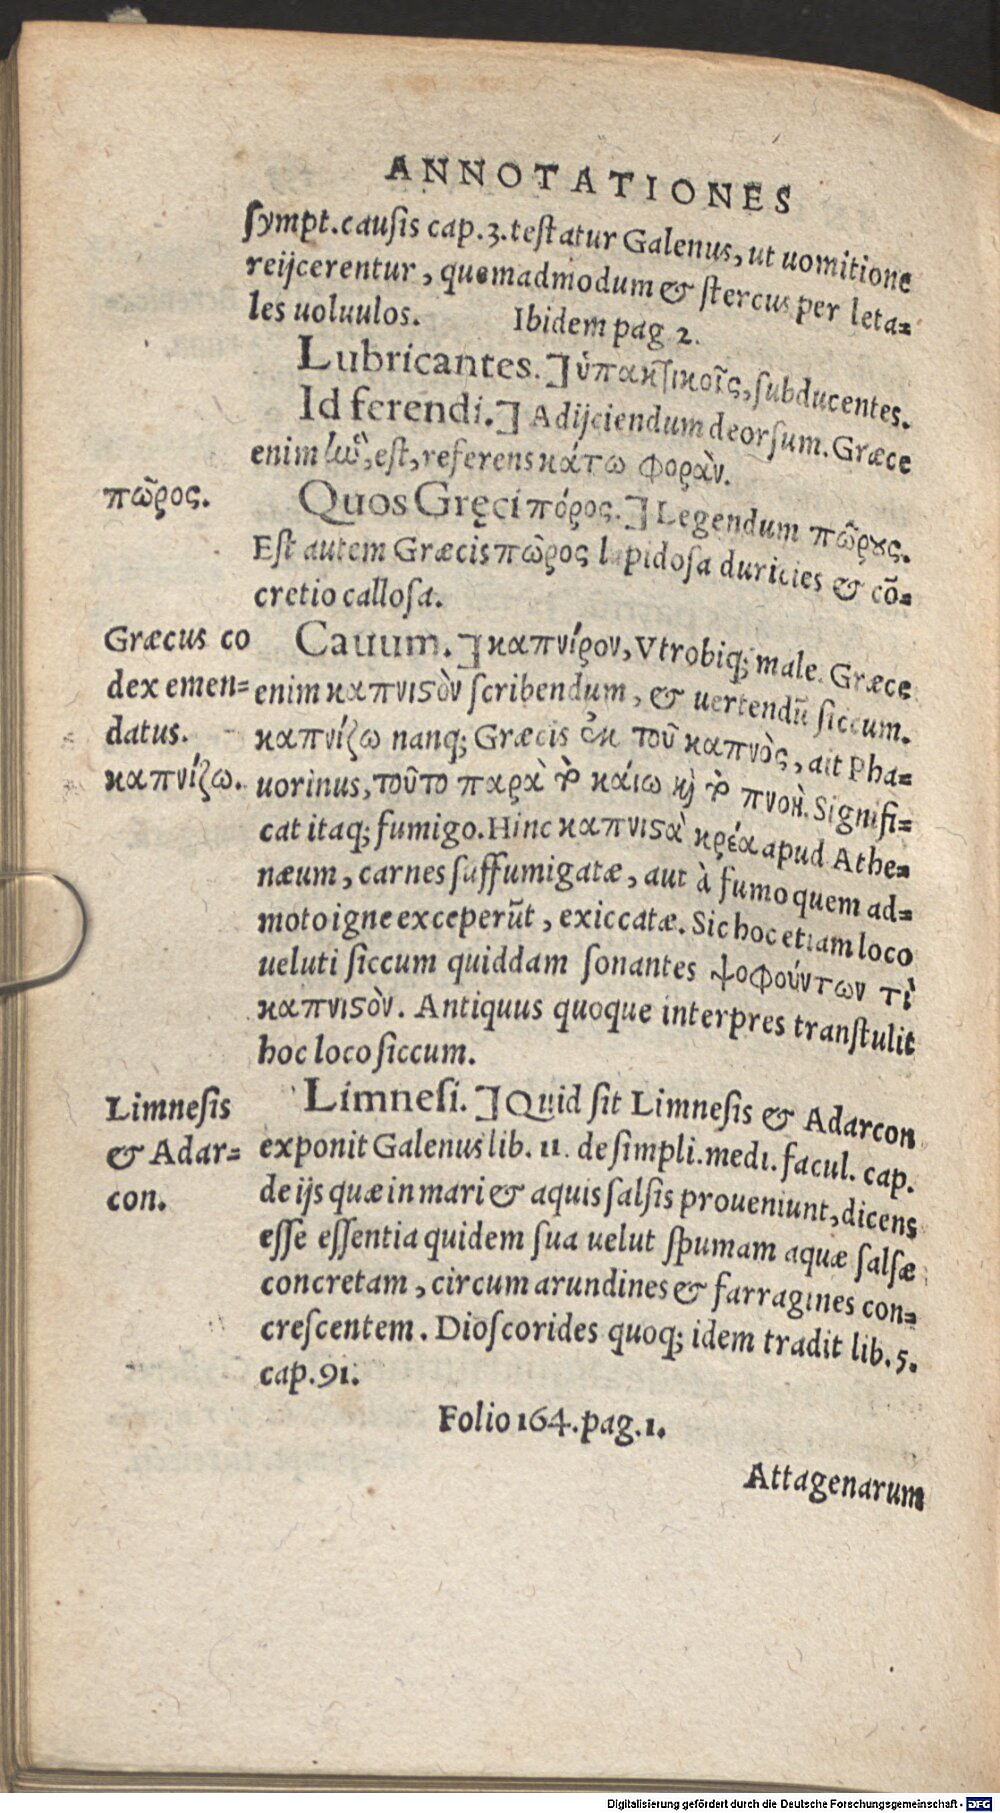 ANNOTATIONES
sympt. causis cap. 3. testatur Galenus, ut uomitione
reijcerentur, quemadmodum & stercus per leta-
les uoluulos. Ibidem pag 2.
Lubricantes.] ὑπακτικοῖς, subducentes.
Id ferendi.] Adijciendum deorsum. Græce
enim est, referens κάτω φορὰν.
πῶρος.
Quos Gręci πόρος.] Legendum πῶρους.
Est autem Græcis πῶρος lapidosa duricies & cō-
cretio callosa.
Græcus co
dex emen-
datus.
καπνίζω.
Cauum.] καπνίρον, Vtrobiq; male. Græce
enim καπνιστὸν scribendum, & uertendū siccum.
καπνίζω nanq; Græcis ἐκ τοῦ καπνὸς, ait Pha-
uorinus, τοῦτο παρὰ τὸ κάιω καὶ τὸ πνοὴ. Signifi-
cat itaq; fumigo. Hinc καπνιστὰ κρέα apud Athe-
næum, carnes suffumigatæ, aut à fumo quem ad-
moto igne exceperūt, exiccatæ. Sic hoc etiam loco
ueluti siccum quiddam sonantes ψοφούντων τὶ
καπνιστὸν. Antiquus quoque interpres transtulit
hoc loco siccum.
Limnesis
& Adar-
con.
Limnesi.] Quid sit Limnesis & Adarcon
exponit Galenus lib. 11. de simpli. medi. facul. cap.
de ijs quæ in mari & aquis salsis proueniunt, dicens
esse essentia quidem sua uelut spumam aquæ salsæ
concretam, circum arundines & farragines con-
crescentem. Dioscorides quoq; idem tradit lib. 5.
cap. 91.
Folio 164. pag. 1.
Attagenarum
Digitalisierung gefördert durch die Deutsche Forschungsgemeinschaft - DFG